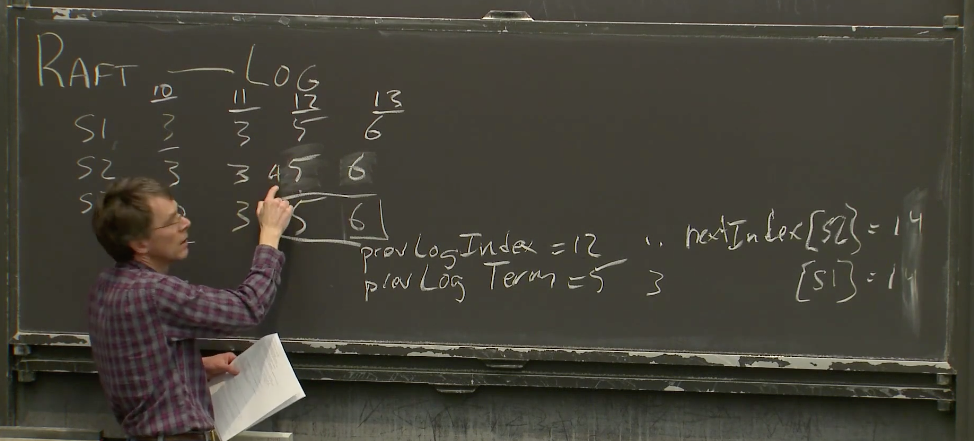 RAFT — LOG
10 11 12 13
S1 3 3 5 6
S2 3 3 4 5 6
3 5 6
prevLogIndex = 12 nextIndex[S2] = 14
prevLog Term = 5 3 [S1] = 14